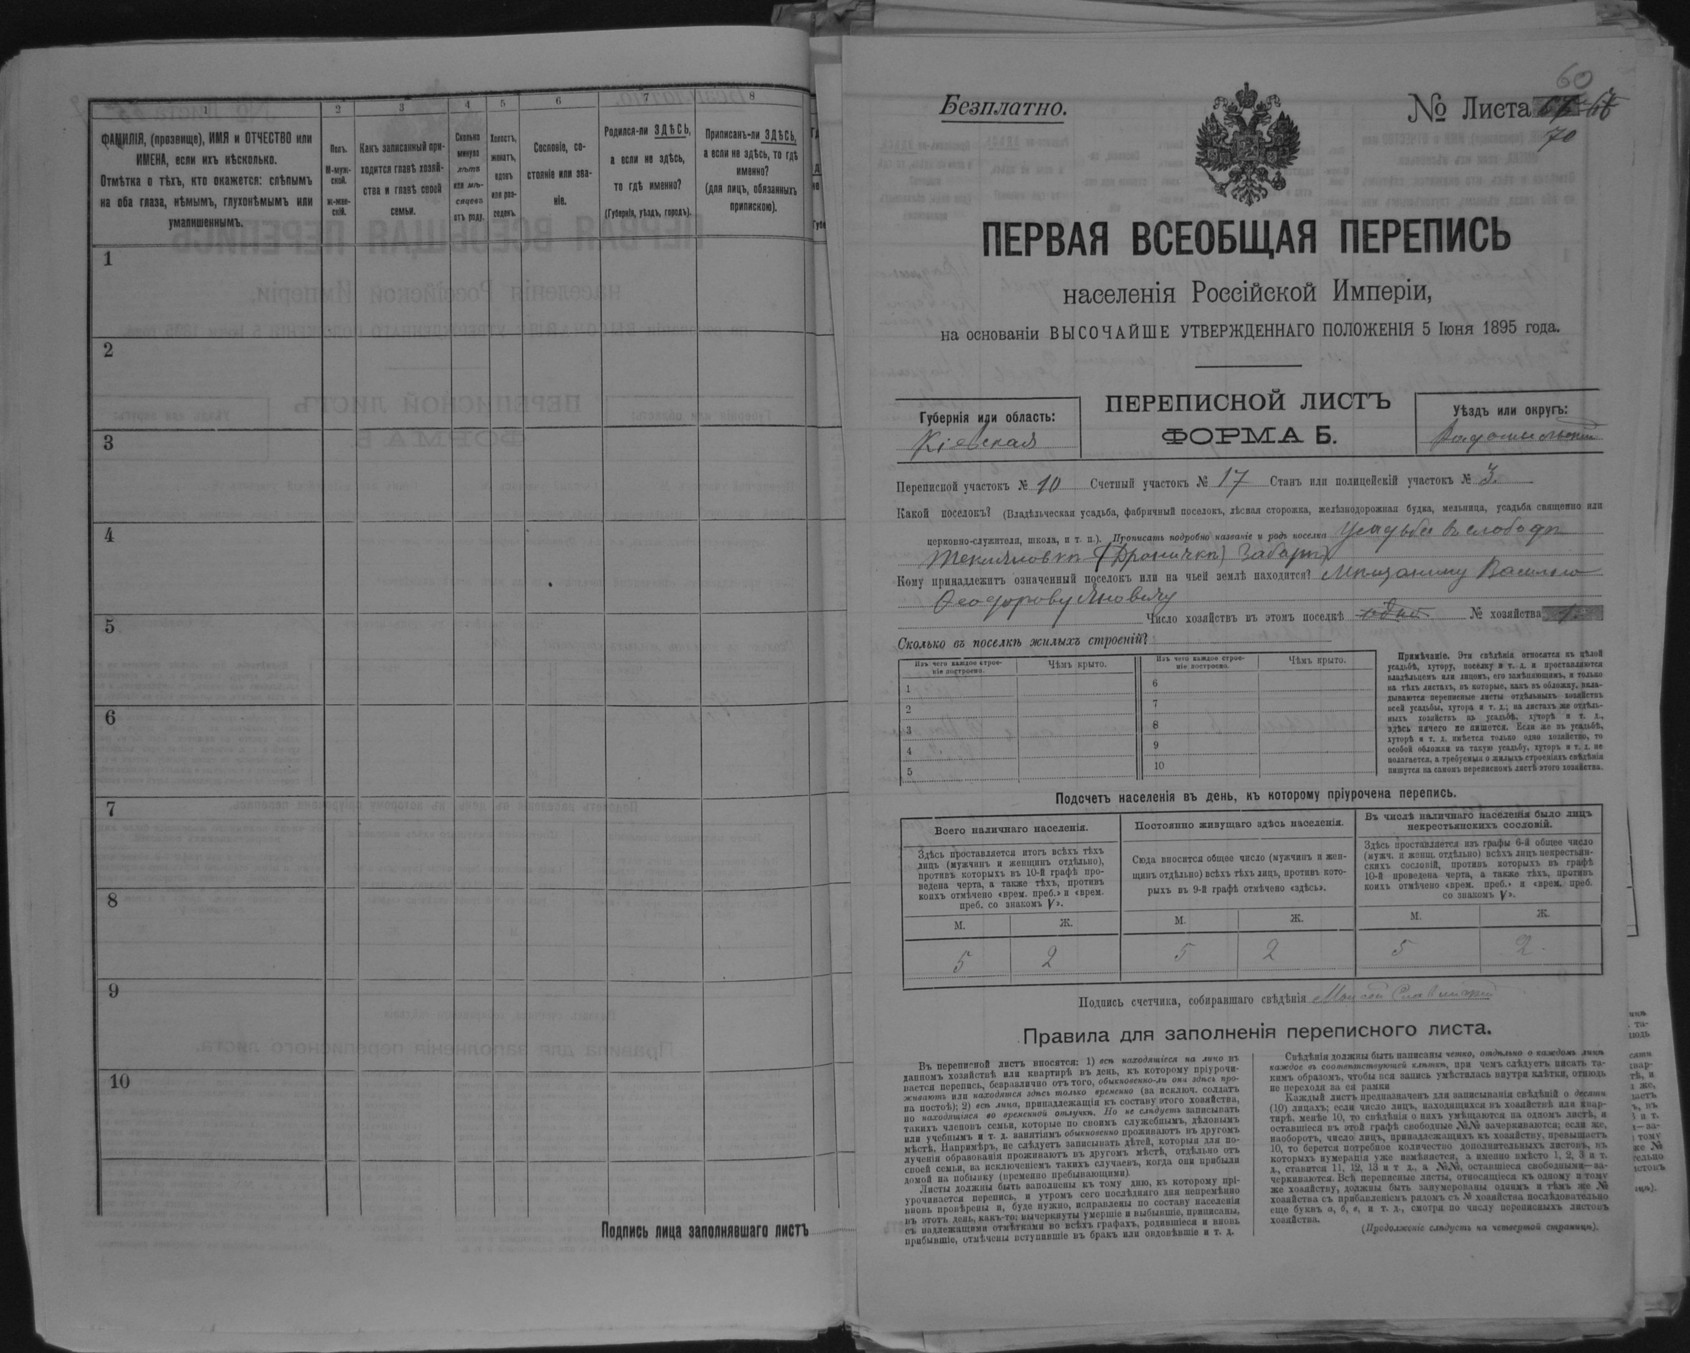 1
2
3
4
5
6
7
8
ФАМИЛІЯ, (прозвище), ИМЯ и ОТЧЕСТВО или
ИМЕНА, если ихъ нѣсколько.
Отмѣтка о тѣхъ, кто окажется: слѣпымъ
на оба глаза, нѣмымъ, глухонѣмымъ или
умалишеннымъ.
Полъ.
М-муж-
ской.
ж-жен-
скій.
Какъ записанный при-
ходится главѣ хозяй-
ства и главѣ своей
семьи.
Сколько
минуло
лѣтъ
или мѣ-
сяцевъ
отъ роду.
Холостъ,
женатъ,
вдовъ
или раз-
веденъ.
Сословіе, со-
стояніе или зва-
ніе.
Родился-ли ЗДѢСЬ,
а если не здѣсь,
то гдѣ именно?
(Губернія, уѣздъ, городъ).
Приписанъ-ли ЗДѢСЬ,
а если не здѣсь, то гдѣ
именно?
(для лицъ, обязанныхъ
припискою).
1
2
3
4
5
6
7
8
9
10
Подпись лица заполнявшаго листъ
60
Безплатно.
№ Листа
70
ПЕРВАЯ ВСЕОБЩАЯ ПЕРЕПИСЬ
населенія Россійской Имперіи,
на основаніи ВЫСОЧАЙШЕ УТВЕРЖДЕННАГО ПОЛОЖЕНІЯ 5 Іюня 1895 года.
Губернія или область:
Кіевская
ПЕРЕПИСНОЙ ЛИСТЪ
ФОРМА Б.
Уѣздъ или округъ:
Радомысльскій
Переписной участокъ № 10 Счетный участокъ № 17 Станъ или полицейскій участокъ № 3.
Какой поселокъ? (Владѣльческая усадьба, фабричный поселокъ, лѣсная сторожка, желѣзнодорожная будка, мельница, усадьба священно или
церковно-служителя, школа, и т. п.). Прописать подробно названіе и родъ поселка Усадьба в слободѣ
Кому принадлежитъ означенный поселокъ или на чьей землѣ находится? Мѣщанину Василію
Ѳеодорову Яновичу
Число хозяйствъ въ этомъ поселкѣ одно № хозяйства 1.
Сколько въ поселкѣ жилыхъ строеній?
Изъ чего каждое строе-
ніе построено.
Чѣмъ крыто.
Изъ чего каждое строе-
ніе построено.
Чѣмъ крыто.
1
2
3
4
5
6
7
8
9
10
Примѣчаніе. Эти свѣдѣнія относятся къ цѣлой
усадьбѣ, хутору, поселку и т. д. и проставляются
владѣльцемъ или лицомъ, его замѣняющимъ, и только
на тѣхъ листахъ, въ которые, какъ въ обложку, вкла-
дываются переписные листы отдѣльныхъ хозяйствъ
всей усадьбы, хутора и т. д.; на листахъ же отдѣль-
ныхъ хозяйствъ въ усадьбѣ, хуторѣ и т. д.,
здѣсь ничего не пишется. Если же въ усадьбѣ,
хуторѣ и т. д. имѣется только одно хозяйство, то
особой обложки на такую усадьбу, хуторъ и т. д. не
полагается, а требуемыя о жилыхъ строеніяхъ свѣдѣнія
пишутся на самомъ переписномъ листѣ этого хозяйства.
Подсчетъ населенія въ день, къ которому пріурочена перепись.
Всего наличнаго населенія.
Здѣсь проставляется итогъ всѣхъ тѣхъ
лицъ (мужчинъ и женщинъ отдѣльно),
противъ которыхъ въ 10-й графѣ про-
ведена черта, а также тѣхъ, противъ
коихъ отмѣчено «врем. преб.» и «врем.
преб. со знакомъ V».
М.
Ж.
5
2
Постоянно живущаго здѣсь населенія.
Сюда вносится общее число (мужчинъ и жен-
щинъ отдѣльно) всѣхъ тѣхъ лицъ, противъ кото-
рыхъ въ 9-й графѣ отмѣчено «здѣсь».
М.
Ж.
5
2
Въ числѣ наличнаго населенія было лицъ
некрестьянскихъ сословій.
Здѣсь проставляется изъ графы 6-й общее число
(мужч. и женщ. отдѣльно) всѣхъ лицъ некрестьян-
скихъ сословій, противъ которыхъ въ графѣ
10-й проведена черта, а также тѣхъ, противъ
коихъ отмѣчено «врем. преб.» и «врем. преб.
со знакомъ V».
М.
Ж.
5
2
Подпись счетчика, собиравшаго свѣдѣнія
Правила для заполненія переписного листа.
Въ переписной листъ вносятся: 1) всѣ находящіеся на лицо въ
данномъ хозяйствѣ или квартирѣ въ день, къ которому пріурочи-
вается перепись, безразлично отъ того, обыкновенно-ли они здѣсь про-
живаютъ или находятся здѣсь только временно (за исключ. солдатъ
на постоѣ); 2) всѣ лица, принадлежащія къ составу этого хозяйства,
но находящіяся во временной отлучкѣ. Но не слѣдуетъ записывать
такихъ членовъ семьи, которые по своимъ служебнымъ, дѣловымъ
или учебнымъ и т. д. занятіямъ обыкновенно проживаютъ въ другомъ
мѣстѣ. Напримѣръ, не слѣдуетъ записывать дѣтей, которыя для по-
лученія образованія проживаютъ въ другомъ мѣстѣ, отдѣльно отъ
своей семьи, за исключеніемъ такихъ случаевъ, когда они прибыли
домой на побывку (временно пребывающими).
Листы должны быть заполнены къ тому дню, къ которому прі-
урочивается перепись, и утромъ сего послѣдняго дня непремѣнно
вновь провѣрены и, буде нужно, исправлены по составу населенія
въ этотъ день, какъ-то: вычеркнуты умершіе и выбывшіе, приписаны,
съ надлежащими отмѣтками во всѣхъ графахъ, родившіеся и вновь
прибывшіе, отмѣчены вступившіе въ бракъ или овдовѣвшіе и т. д.
Свѣдѣнія должны быть написаны четко, отдѣльно о каждомъ лицѣ
каждое въ соотвѣтствующей клѣткѣ, при чемъ слѣдуетъ писать та-
кимъ образомъ, чтобы вся запись умѣстилась внутри клѣтки, отнюдь
не переходя за ея рамки
Каждый листъ предназначенъ для записыванія свѣдѣній о десяти
(10) лицахъ; если число лицъ, находящихся въ хозяйствѣ или квар-
тирѣ, менѣе 10, то свѣдѣнія о нихъ умѣщаются на одномъ листѣ, а
оставшіеся въ этой графѣ свободные №№ зачеркиваются; если же,
наоборотъ, число лицъ, принадлежащихъ къ хозяйству, превышаетъ
10, то берется потребное количество дополнительныхъ листовъ, въ
которыхъ нумерація уже измѣняется, а именно вмѣсто 1, 2, 3 и т.
д., ставится 11, 12, 13 и т д., а №№, оставшіеся свободными—за-
черкиваются. Всѣ переписные листы, относящіеся къ одному и тому
же хозяйству, должны быть занумерованы однимъ и тѣмъ же №
хозяйства съ прибавленіемъ рядомъ съ № хозяйства послѣдовательно
еще буквъ а, б, в, и т. д., смотря по числу переписныхъ листовъ
хозяйства.
(Продолженіе слѣдуетъ на четвертой страницѣ).